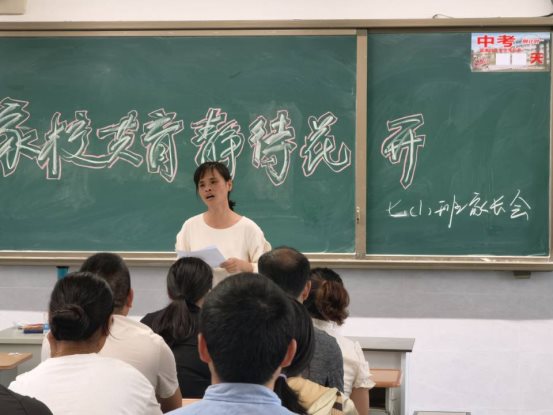 家校共育静待花开
七(1)班家长会
中考
天